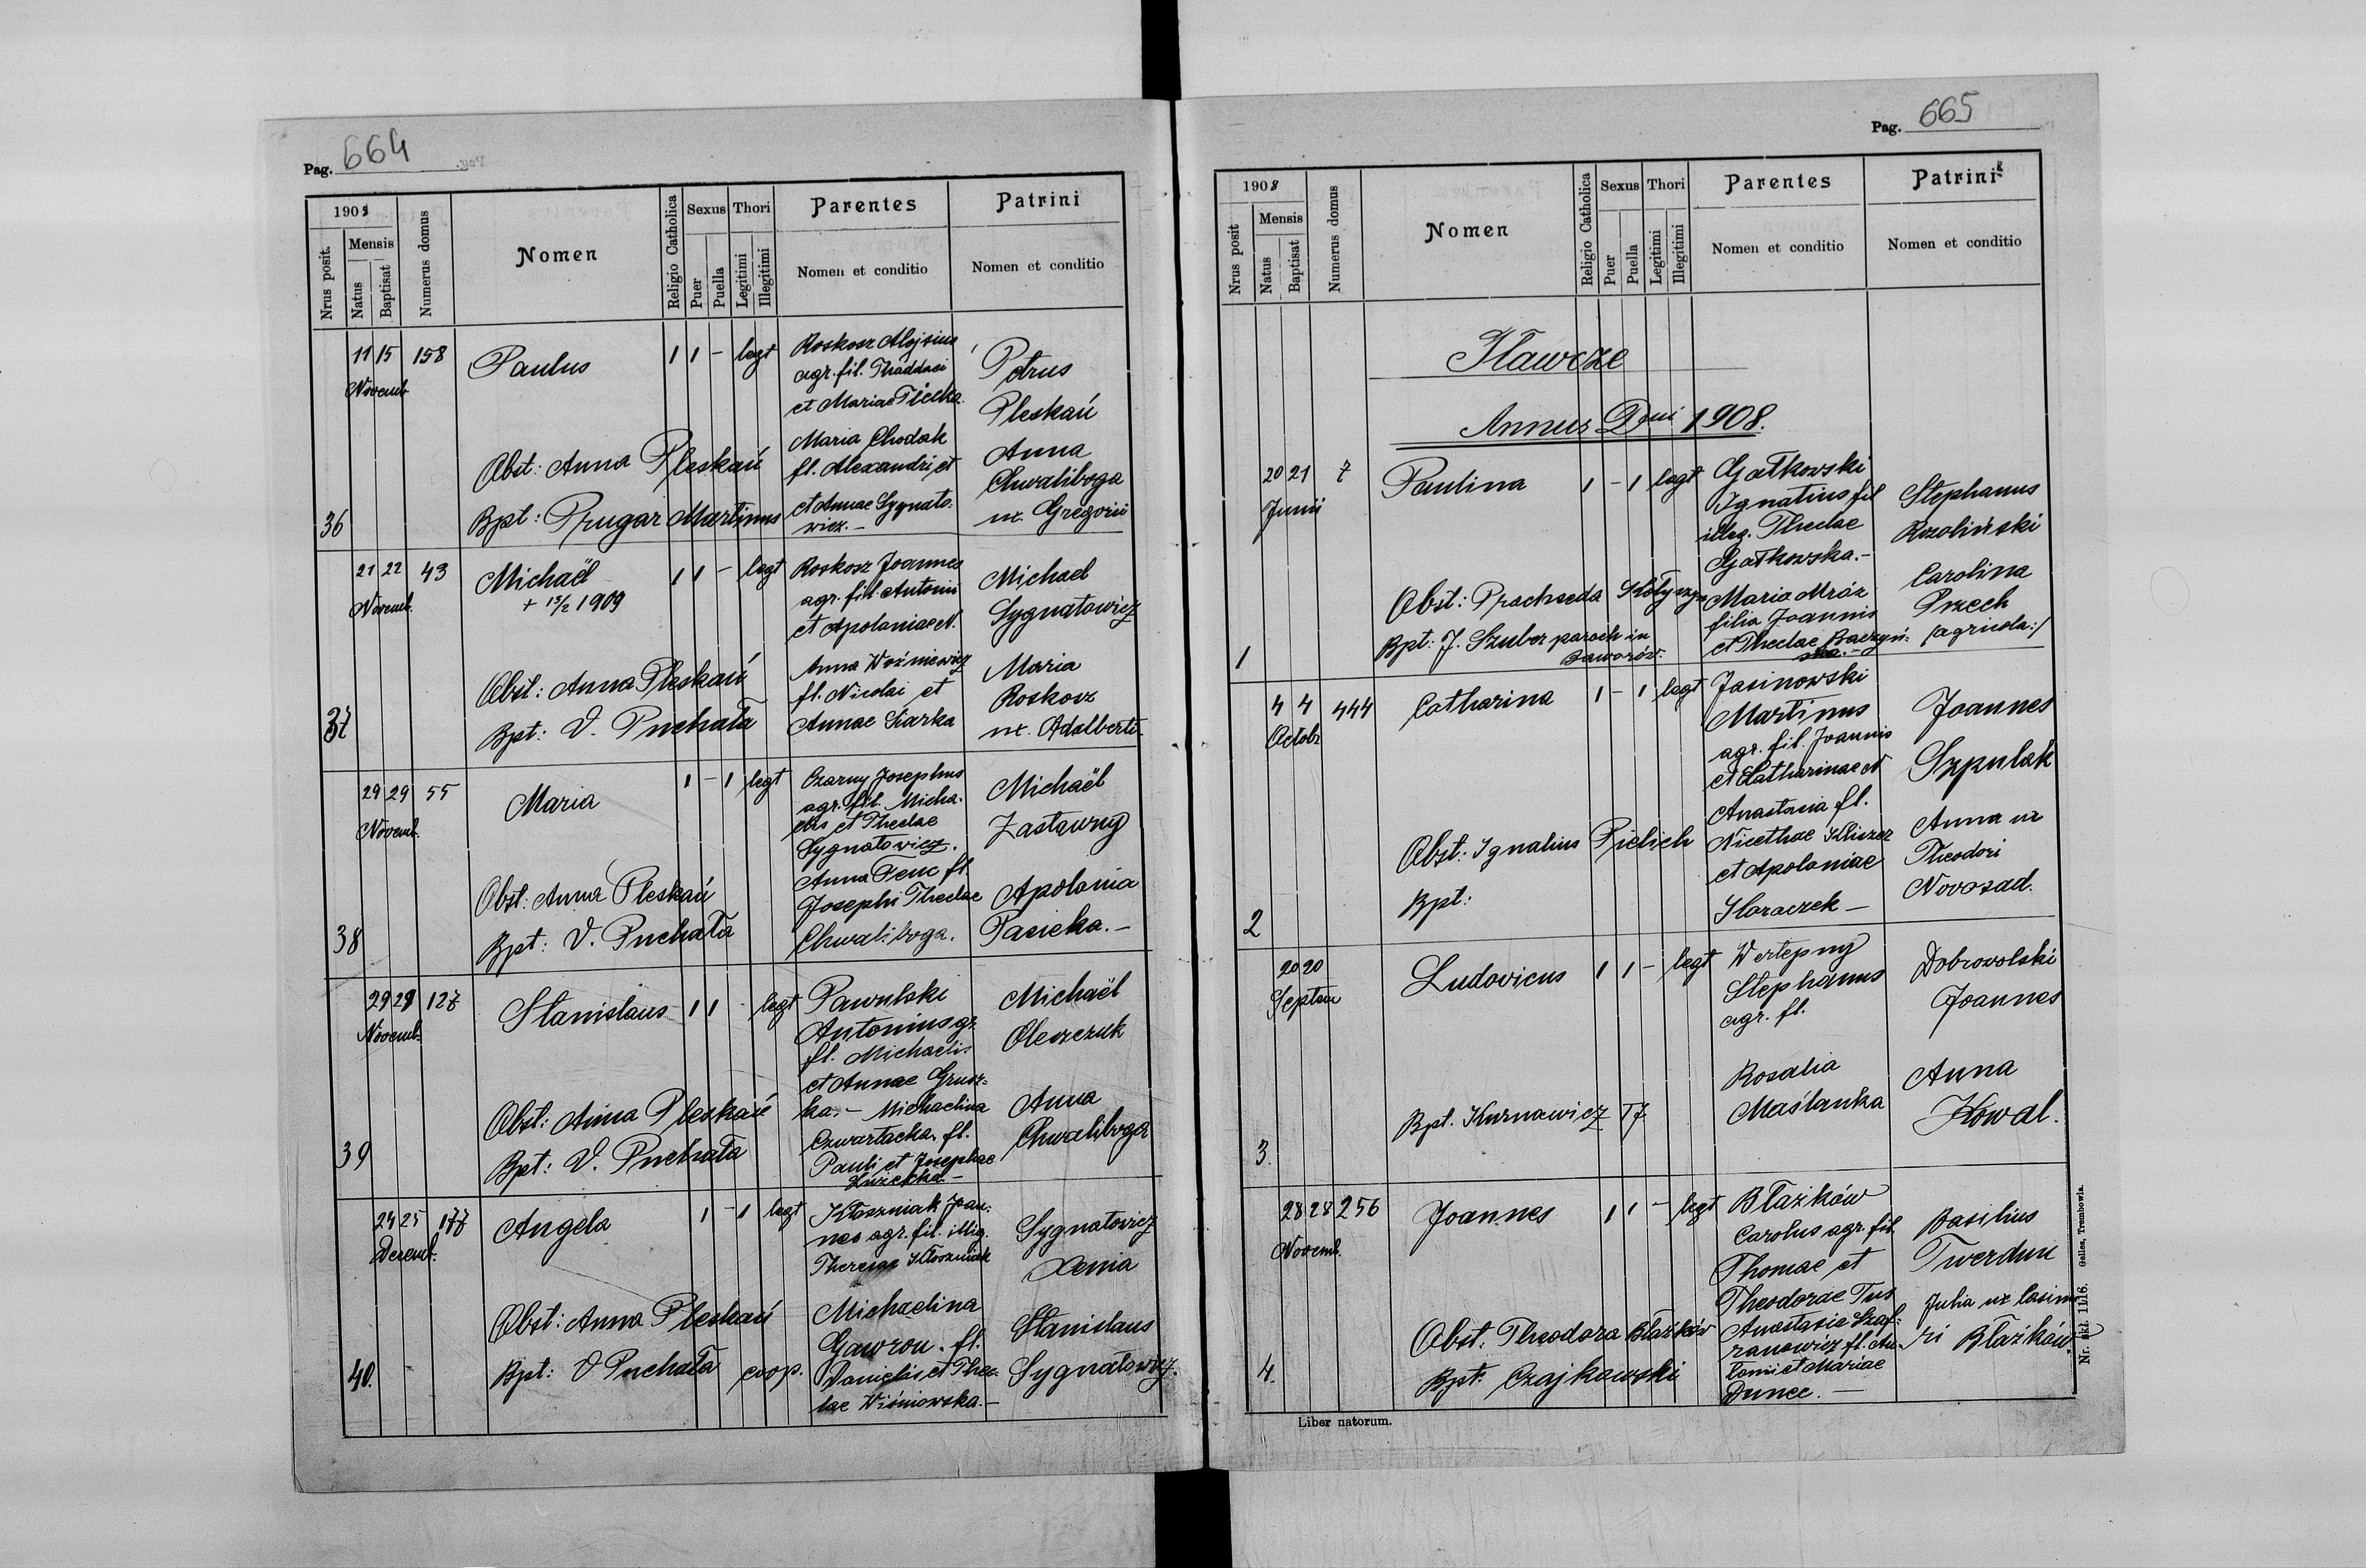 Pag. 664
1908
Nrus posit.
Mensis
Natus
Baptisat
Numerus domus
Nomen
Religio Catholica
Sexus
Puer
Puella
Thori
Legitimi
Illegitimi
Parentes
Nomen et conditio
Patrini
Nomen et conditio
36
11 15 158
Novemb
Paulus
1 1 - legt
Obst: Anna Pleskań
Bpt: Prugar Martinus
Roskosz Alojsius
agr. fil. Thaddaei
et Mariae
Maria Chodak
fl. Alexandri et
et Annae Sygnato-
wicz.-
Petrus
Pleskań
Anna
Chwaliboga
ux. Gregorii
37
21 22 43
Novemb.
Michaël
+ 15/2 1909
1 1 - legt
Obst: Anna Pleskań
Bpt: V. Puchała
Roskosz Joannes
agr. fil. Antonii
et Apolaniae N.
Anna Woźniewicz
fl. Nicolai et
Annae Siarka
Michael
Sygnatowicz
Maria
Roskosz
ux. Adalberti-
38
29 29 55
Novemb.
Maria
1 - 1 legt
Obst: Anna Pleskań
Bpt: V. Puchała
Czarny Josephus
agr. fil. Micha-
elis et Theclae
Sygnatowicz.
Anna Fenc fl.
Josephi Theclae
Chwaliboga.
Michaël
Zastawny
Apolonia
Pasieka.-
39
29 29 127
Novemb.
Stanislaus
1 1 - legt
Obst: Anna Pleskań
Bpt: V. Puchała
Pawulski
Antonius gr.
fl. Michaelis
et Annae Grusz-
ka.- Michaelina
Czwartacka. fl.
Pauli et Josephae
Michaël
Oleszczuk
Anna
Chwaliboga
40.
24 25 177
Decemb.
Angela
1 - 1 legt
Obst: Anna Pleskań
Bpt: V Puchała coop.
Kłoszniak Joan-
nes agr. fil. illig.
Theresiae Kłoszniak
Michaelina
Gawron. fl.
Danielis et Thec-
lae Wiśniowska.-
Sygnatowicz
Xenia
Stanislaus
Sygnatowicz.
Pag. 665
1908
Nrus posit
Mensis
Natus
Baptisat
Numerus domus
Nomen
Religio Catholica
Sexus
Puer
Puella
Thori
Legitimi
Illegitimi
Parentes
Nomen et conditio
Patrini
Nomen et conditio
Iławcze
Annus Dni 1908.
1
20 21 7
Junii
Paulina
1 - 1 legt
Obst: Prachseda
Bpt: J. Szuber paroch in
Baworów.
Gałkowski
Ignatius fil
illeg. Theclae
Gałkowska.-
Maria Mróz
filia Joannis
et Theclae Baczyń-
ska.-
Stephanus
Rozoliński
Carolina
Przech
/agricola:/
2
4 4 444
Octobr
Catharina
1 - 1 legt
Obst: Ignatius Pielich
Bpt:
Jasinowski
Martinus
agr. fil. Joannis
et Catharinae N
Anastasia fl.
Nicethae Kliszcz
et Apoloniae
Skraczek-
Joannes
Szpulak
Anna ux
Theodori
Novosad.
3.
20 20
Septem
Ludovicus
1 1 - legt
Bpt. Kurnawicz TJ
Wertepny
Stephanus
agr. fl.
Rosalia
Maślanka
Dobrovolski
Joannes
Anna
Kowal.
4.
28 28 256
Novemb.
Joannes
1 1 - legt
Obst: Theodora Błażków
Bpt: Czajkowski
Błażków
Carolus agr. fil.
Thomae et
Theodorae Tus
Anastasia Szaf-
ranowicz fl. An-
toni et Mariae
Dunec.-
Basilius
Twerdun
Julia ux Casimi-
ri Błażków
Liber natorum.
Nr. skł. 1116. Gelles, Trembowla.